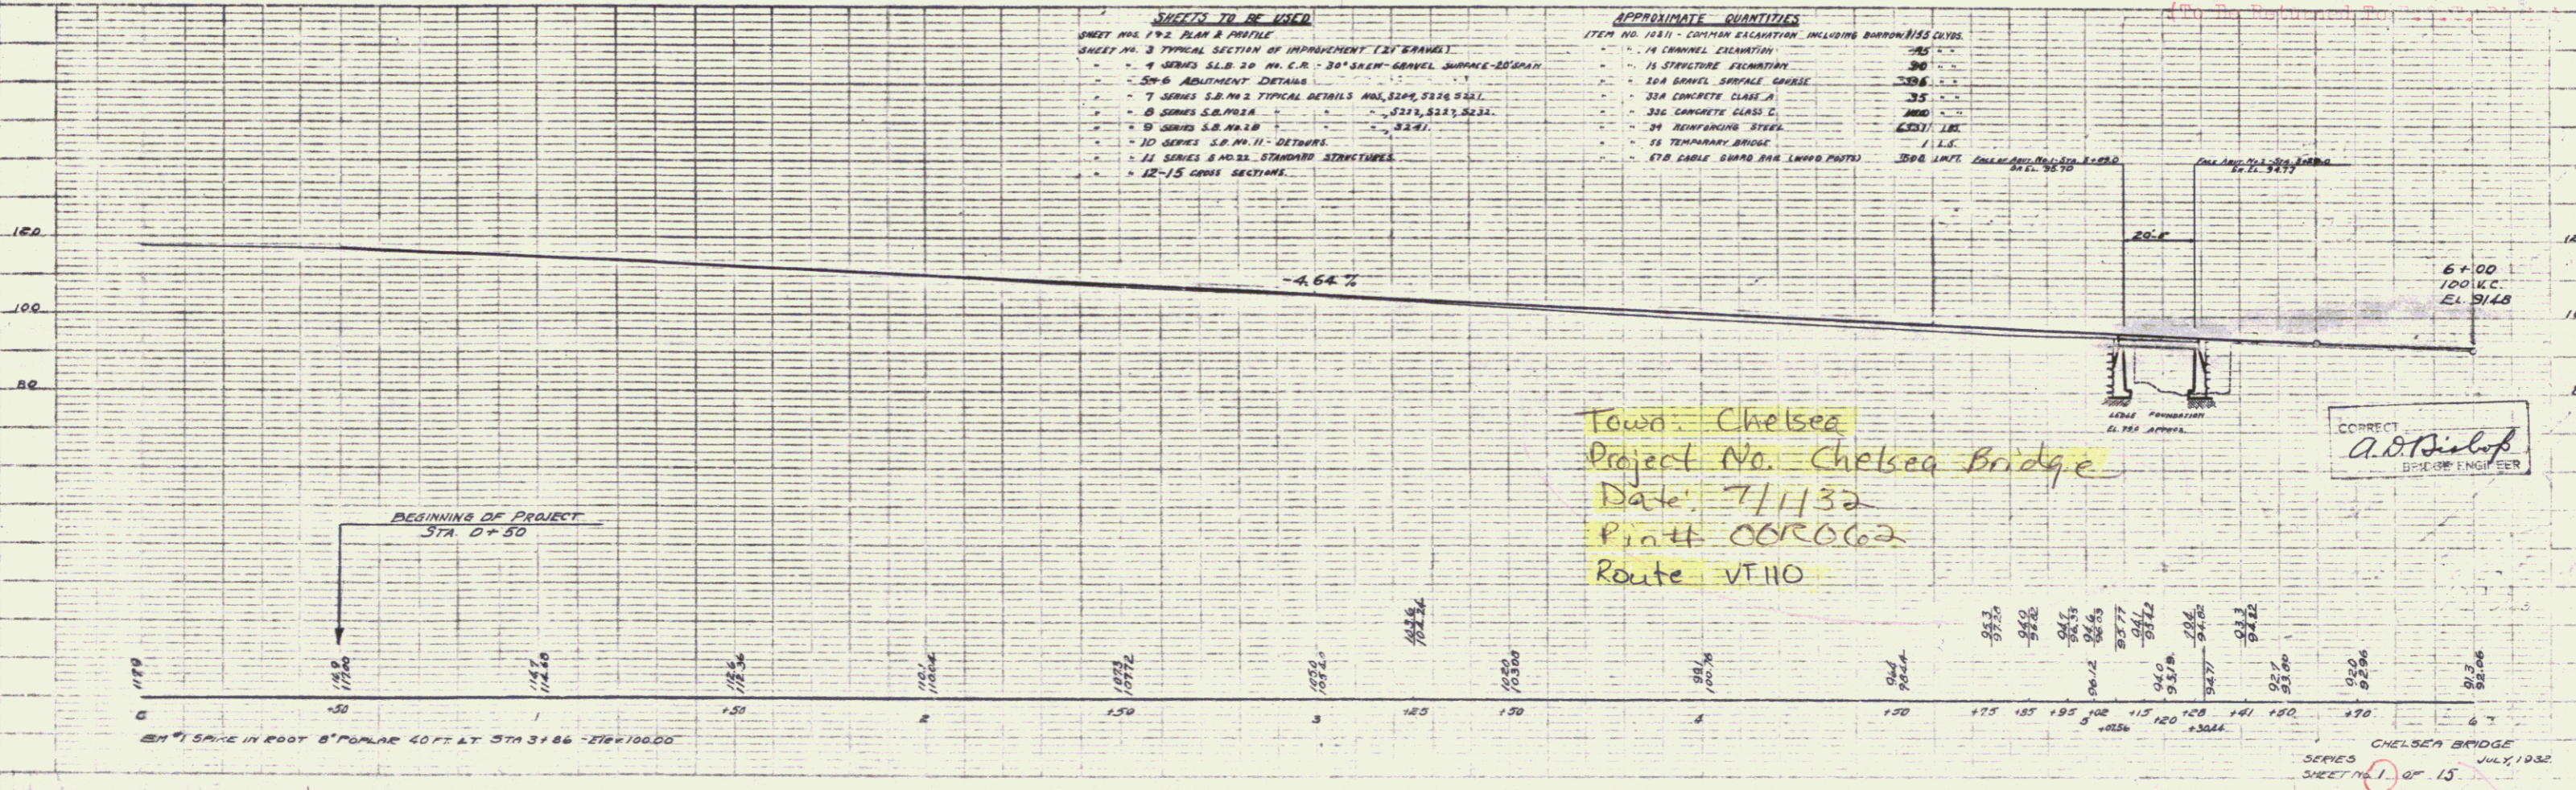 (To Be Returned To
SHEETS TO BE USED
SHEET NOS. 1 & 2 PLAN & PROFILE
SHEET NO. 3 TYPICAL SECTION OF IMPROVEMENT (21' GRAVEL)
" " 4 SERIES S.L.B. 20 NO. C.R. - 30° SKEW - GRAVEL SURFACE - 20' SPAN
" " 5 & 6 ABUTMENT DETAILS
" " 7 SERIES S.B. NO 2 TYPICAL DETAILS NOS, S204, S220, S221.
" " 8 SERIES S.B. NO 2A " " ", S222, S227, S232.
" " 9 SERIES S.B. NO. 2B " " ", S241.
" " 10 SERIES S.B. NO. 11 - DETOURS.
" " 11 SERIES S NO. 22 STANDARD STRUCTURES
" " 12-15 CROSS SECTIONS.
APPROXIMATE QUANTITIES
ITEM NO. 10&11 - COMMON EXCAVATION INCLUDING BORROW CU.YDS.
" " 14 CHANNEL EXCAVATION " "
" " 15 STRUCTURE EXCAVATION 90 " "
" " 20A GRAVEL SURFACE COURSE " "
" " 33A CONCRETE CLASS A 35 " "
" " 33C CONCRETE CLASS C " "
" " 34 REINFORCING STEEL LBS.
" " 56 TEMPORARY BRIDGE 1 L.S.
" " 67B CABLE GUARD RAIL (WOOD POSTS) LIN.FT.
FACE OF ABUT. NO.1-STA.
GR. EL. 95.70
FACE ABUT. NO.2-STA.
GR. EL. 94.77
120
100
80
-4.64 %
20'-0"
6+00
100' V.C.
EL. 91.48
LEDGE FOUNDATION
APPROX.
CORRECT
A. D. Bishop
BRIDGE ENGINEER
Town: Chelsea
Project No. Chelsea Bridge
Date: 7/1/32
Pin# 00R062
Route VT110
BEGINNING OF PROJECT
STA. 0+50
117.9
116.9 117.00
114.7 114.68
112.6 112.36
110.1 110.04
107.3 107.72
105.0 105.40
103.6 104.24
102.0 103.08
99.1 100.76
95.3 97.28
94.0 96.82
94.7 96.35
94.6 96.03
96.12
95.77
94.1 95.42
94.0 95.19
94.82
94.71
93.3 94.22
92.7 93.80
92.0 92.96
91.3 92.06
0 +50 1 +50 2 +50 3 +25 +50 4 +50 +75 +85 +95 5 +02 +15 +20 +28 +41 +50 +70 6
BM #1 SPIKE IN ROOT 8" POPLAR 40 FT. LT STA 3+86 - Elev 100.00
CHELSEA BRIDGE
SERIES JULY, 1932
SHEET NO. 1 OF 15